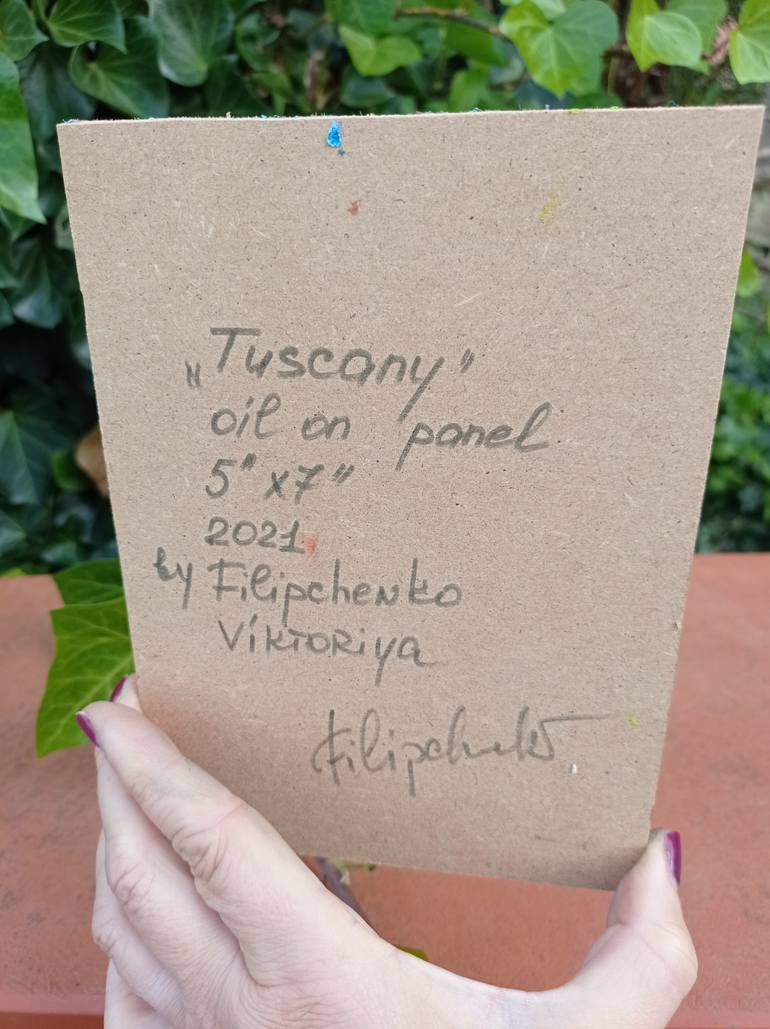 „Tuscany"
oil on panel
5" x7"
2021
by Filipchenko
Viktoriya
Filipchenko